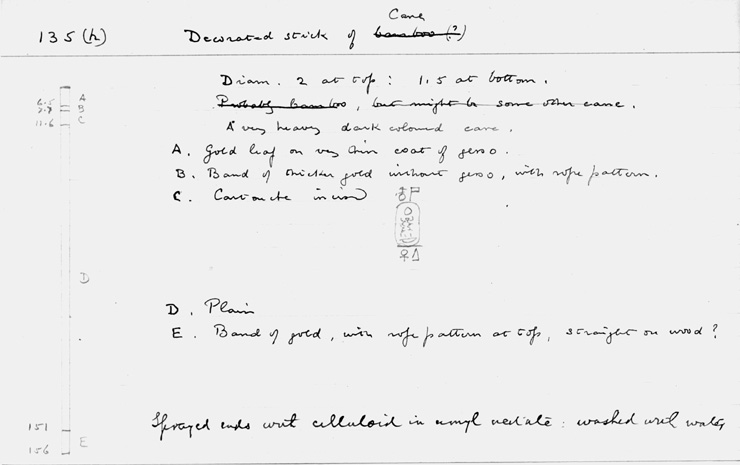 Cane
135 (h) Decorated stick of bamboo (?)
Diam. 2 at top : 1.5 at bottom.
Probably bamboo, but might be some other cane.
A very heavy dark coloured cane.
A. Gold leaf on very thin coat of gesso.
B. Band of thicker gold without gesso, with rope pattern.
C. Cartouche incised
D. Plain
E. Band of gold, with rope pattern at top, straight on wood?
Sprayed ends with celluloid in amyl acetate : washed with water,
A
B
C
11.6
D
151
156
E